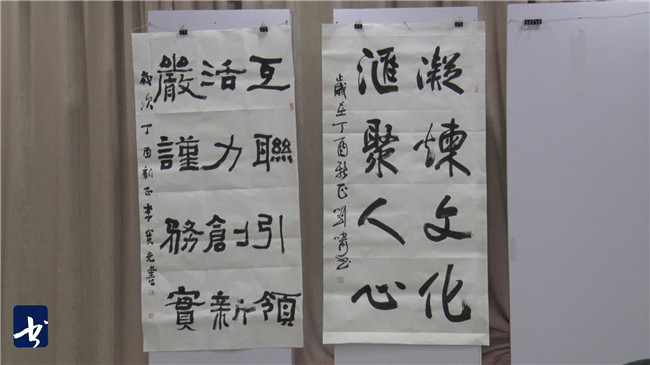 互聯引領
活力創新
嚴謹務實
歲次丁酉新正李元書
凝煉文化
滙聚人心
歲在丁酉新正
书